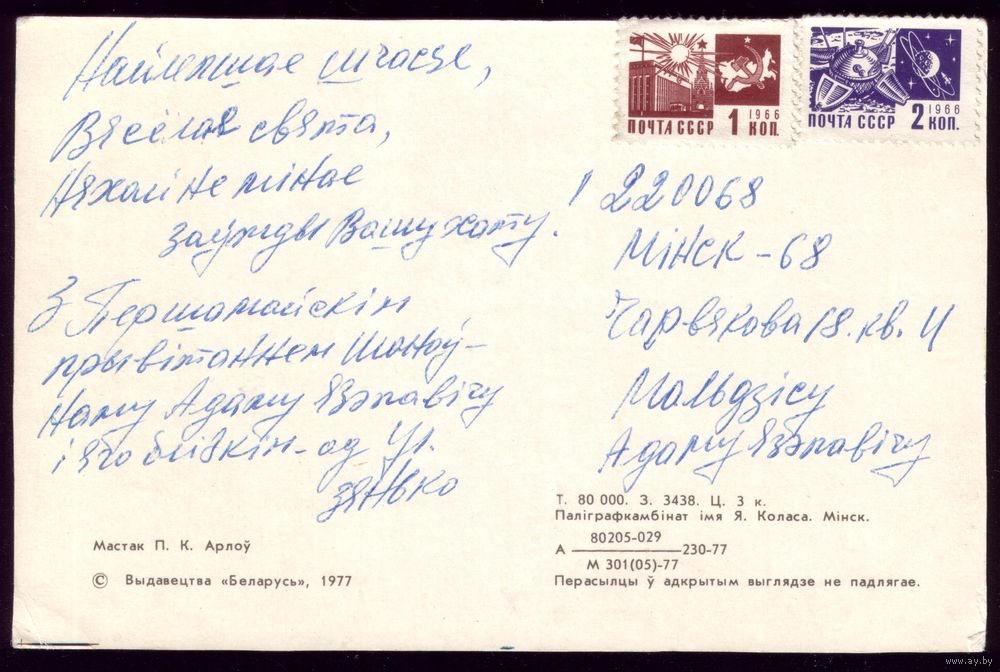 Найлепшае шчасце,
Вясёлае свята,
Няхай не мінае
заўжды Вашу хату!
З Першамайскім
прывітаннем Шаноў-
наму Адаму Язэпавічу
і яго блізкім - ад Ул.
Зянько
ПОЧТА СССР 1 КОП. 1966
ПОЧТА СССР 2 КОП. 1966
220068
МІНСК - 68
Чарвякова 18. кв. 4
Мальдзісу
Адаму Язэпавічу
Т. 80 000. З. 3438. Ц. 3 к.
Паліграфкамбінат імя Я. Коласа. Мінск.
80205-029
А ——— 230-77
М 301(05)-77
Перасылцы ў адкрытым выглядзе не падлягае.
Мастак П. К. Арлоў
© Выдавецтва «Беларусь», 1977
www.ay.by